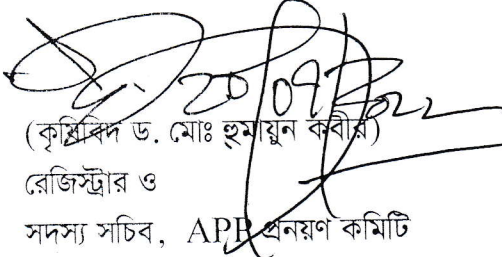 (কৃষিবিদ ড. মোঃ হুমায়ুন কবীর)
রেজিস্ট্রার ও
সদস্য সচিব, APP প্রনয়ণ কমিটি